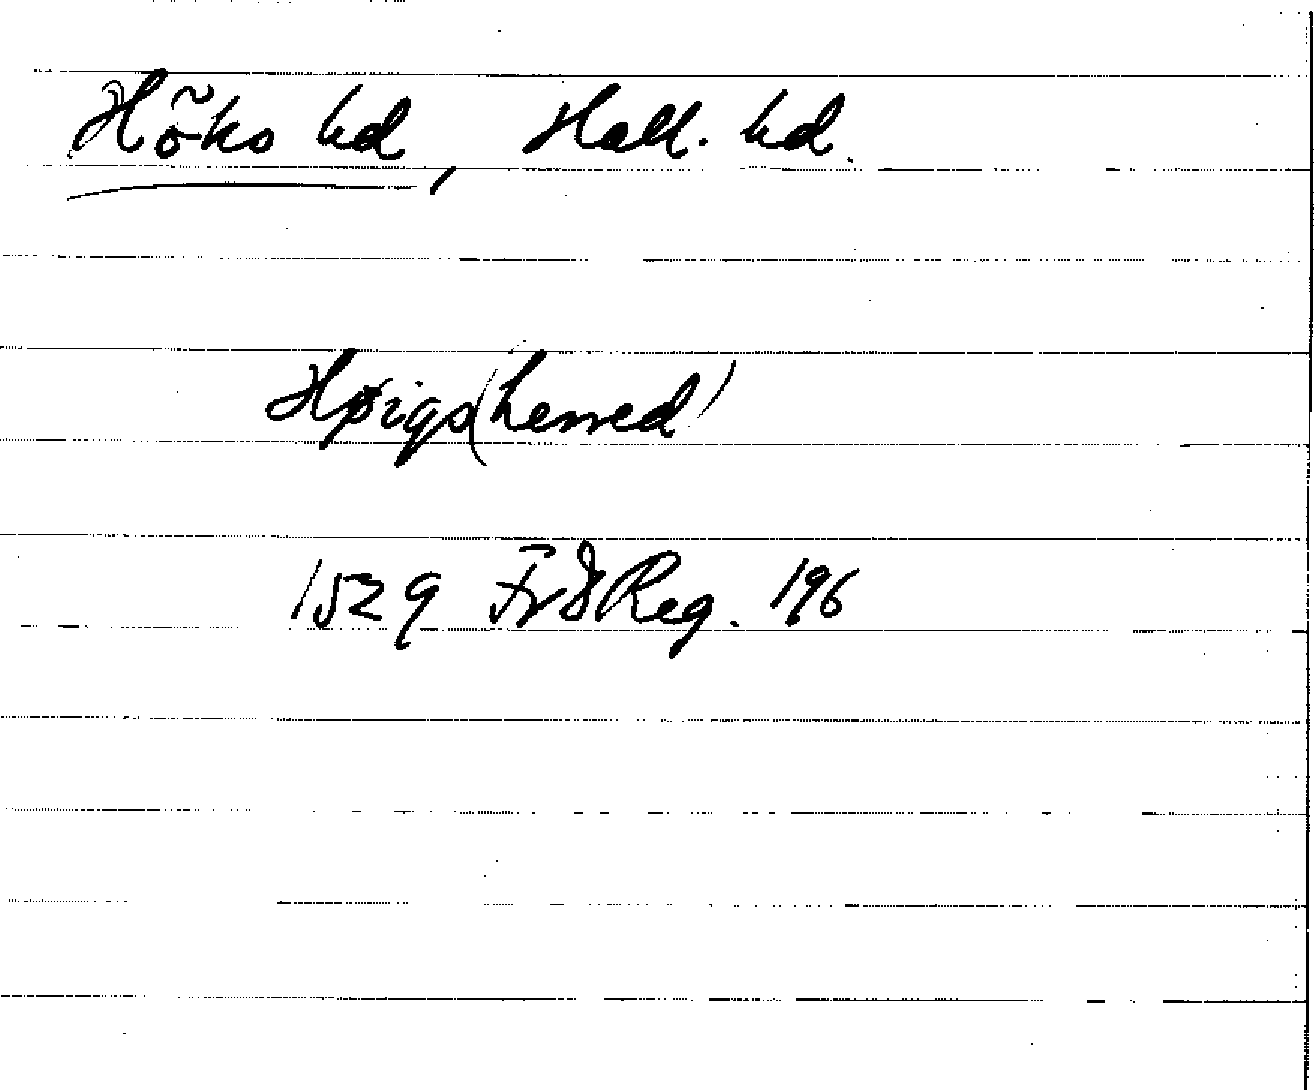 Höks hd, Hall. hd.
Høigs (herred)
1529 Fr I Reg. 196